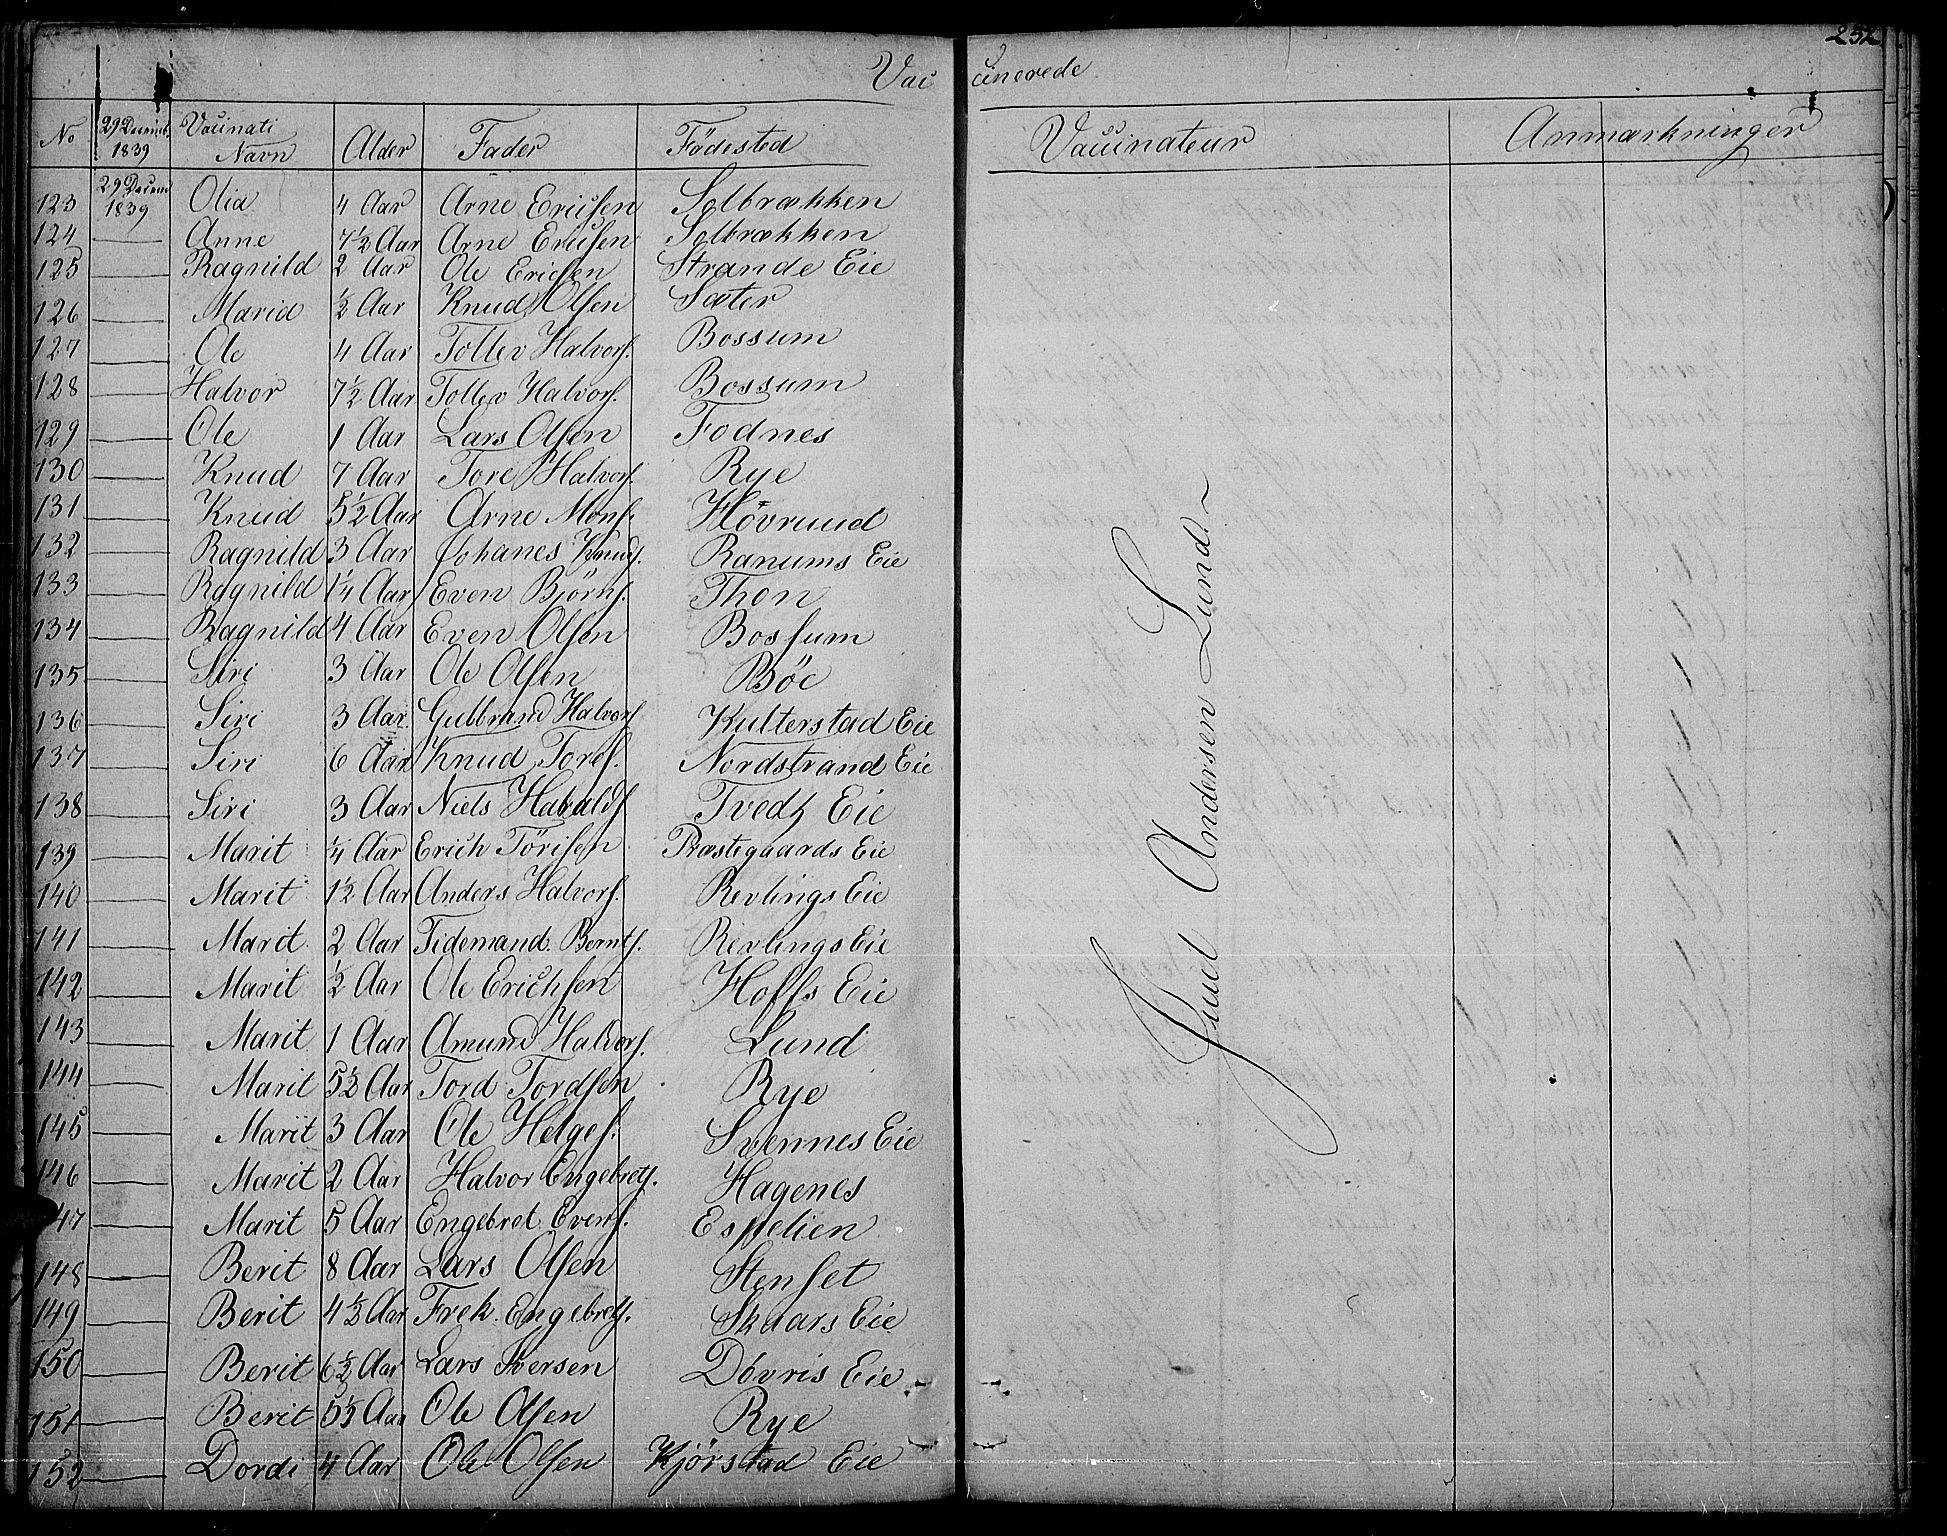 252
Vaccinerede
No 29 Decemb. 1839 Vaccinati Navn Alder Fader Födested Vaccinateur Anmærkninger
123 29 Decem 1839 Olia 4 Aar Arne Ericsen Solbrækken
124 Anne 7½ Aar Arne Ericsen Solbrækken
125 Ragnild 2 Aar Ole Ericsen Strande Eie
126 Marid ½ Aar Knud Olsen Sæter
127 Ole 4 Aar Tollev Halvors. Bossum
128 Halvor 7½ Aar Tollev Halvors. Bossum
129 Ole 1 Aar Lars Olsen Fodnes
130 Knud 7 Aar Tore Halvors. Rye
131 Knud 5½ Aar Arne Mons. Hövrud
132 Ragnild 3 Aar Johanes Knuds. Ranums Eie
133 Ragnild 1¼ Aar Even Björns. Thon
134 Ragnild 4 Aar Even Olsen Bossum
135 Siri 3 Aar Ole Olsen Böe
136 Siri 3 Aar. Gulbrand Halvors. Kulterstad Eie
137 Siri 6 Aar Knud Tores. Nordstrand Eie
138 Siri 3 Aar Niels Havalds. Tvedts Eie
139 Marit ¼ Aar Erich Törisen Præstegaards Eie
140 Marit 1½ Aar Anders Halvors. Revlings Eie
141 Marit 2 Aar Tidemand Bernts. Revlings Eie
142 Marit ½ Aar Ole Erichsen Hoffs Eie
143 Marit 1 Aar Amund Halvors. Lund
144 Marit 5½ Aar Tord Tordsen Rye
145 Marit 3 Aar Ole Helges. Svennes Eie
146 Marit 2 Aar Halvor Engebrets. Hagenes
147 Marit 5 Aar Engebret Evens. Espelien
148 Berit 8 Aar Lars Olsen Stenset
149 Berit 4½ Aar Frek. Engebrets. Skaars Eie
150 Berit 6½ Aar Lars Iversen Dövris Eie
151 Berit 5½ Aar Ole Olsen Rye
152 Dordi 4 Aar Ole Olsen Kjörstad Eie
Juul Andersen Lunde